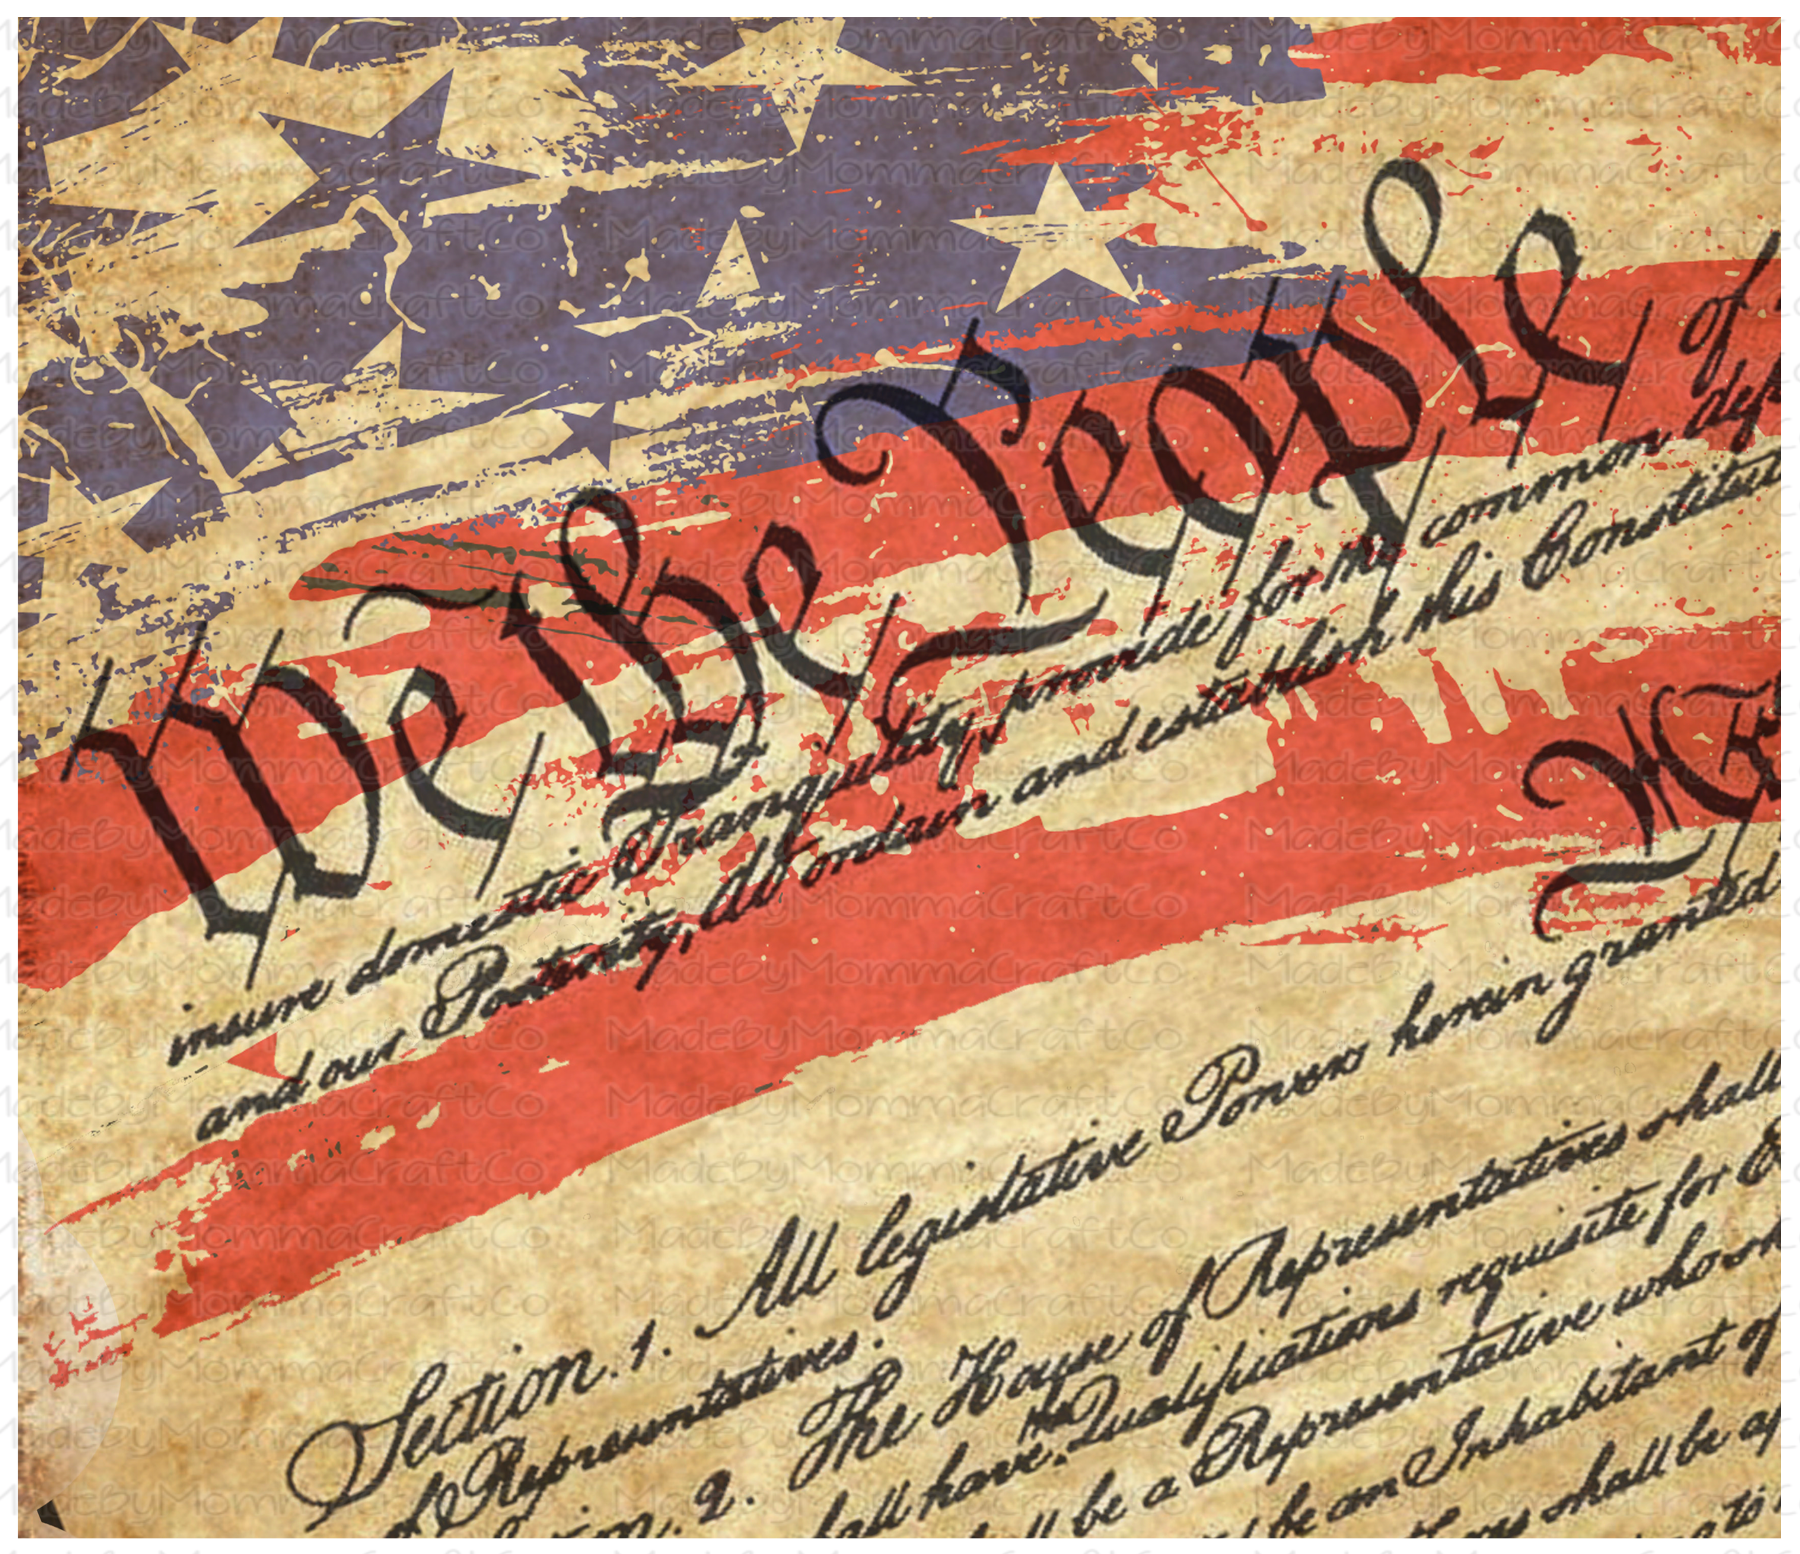 We the People of
insure domestic Tranquility, provide for the common def
and our Posterity, do ordain and establish this Constitut
Section. 1. All legislative Powers herein granted
of Representatives.
Section. 2. The House of Representatives shall
shall have the Qualifications requisite for
shall be a Representative who sh
be an Inhabitant of
shall be ap
to
MadeByMommaCraftCo